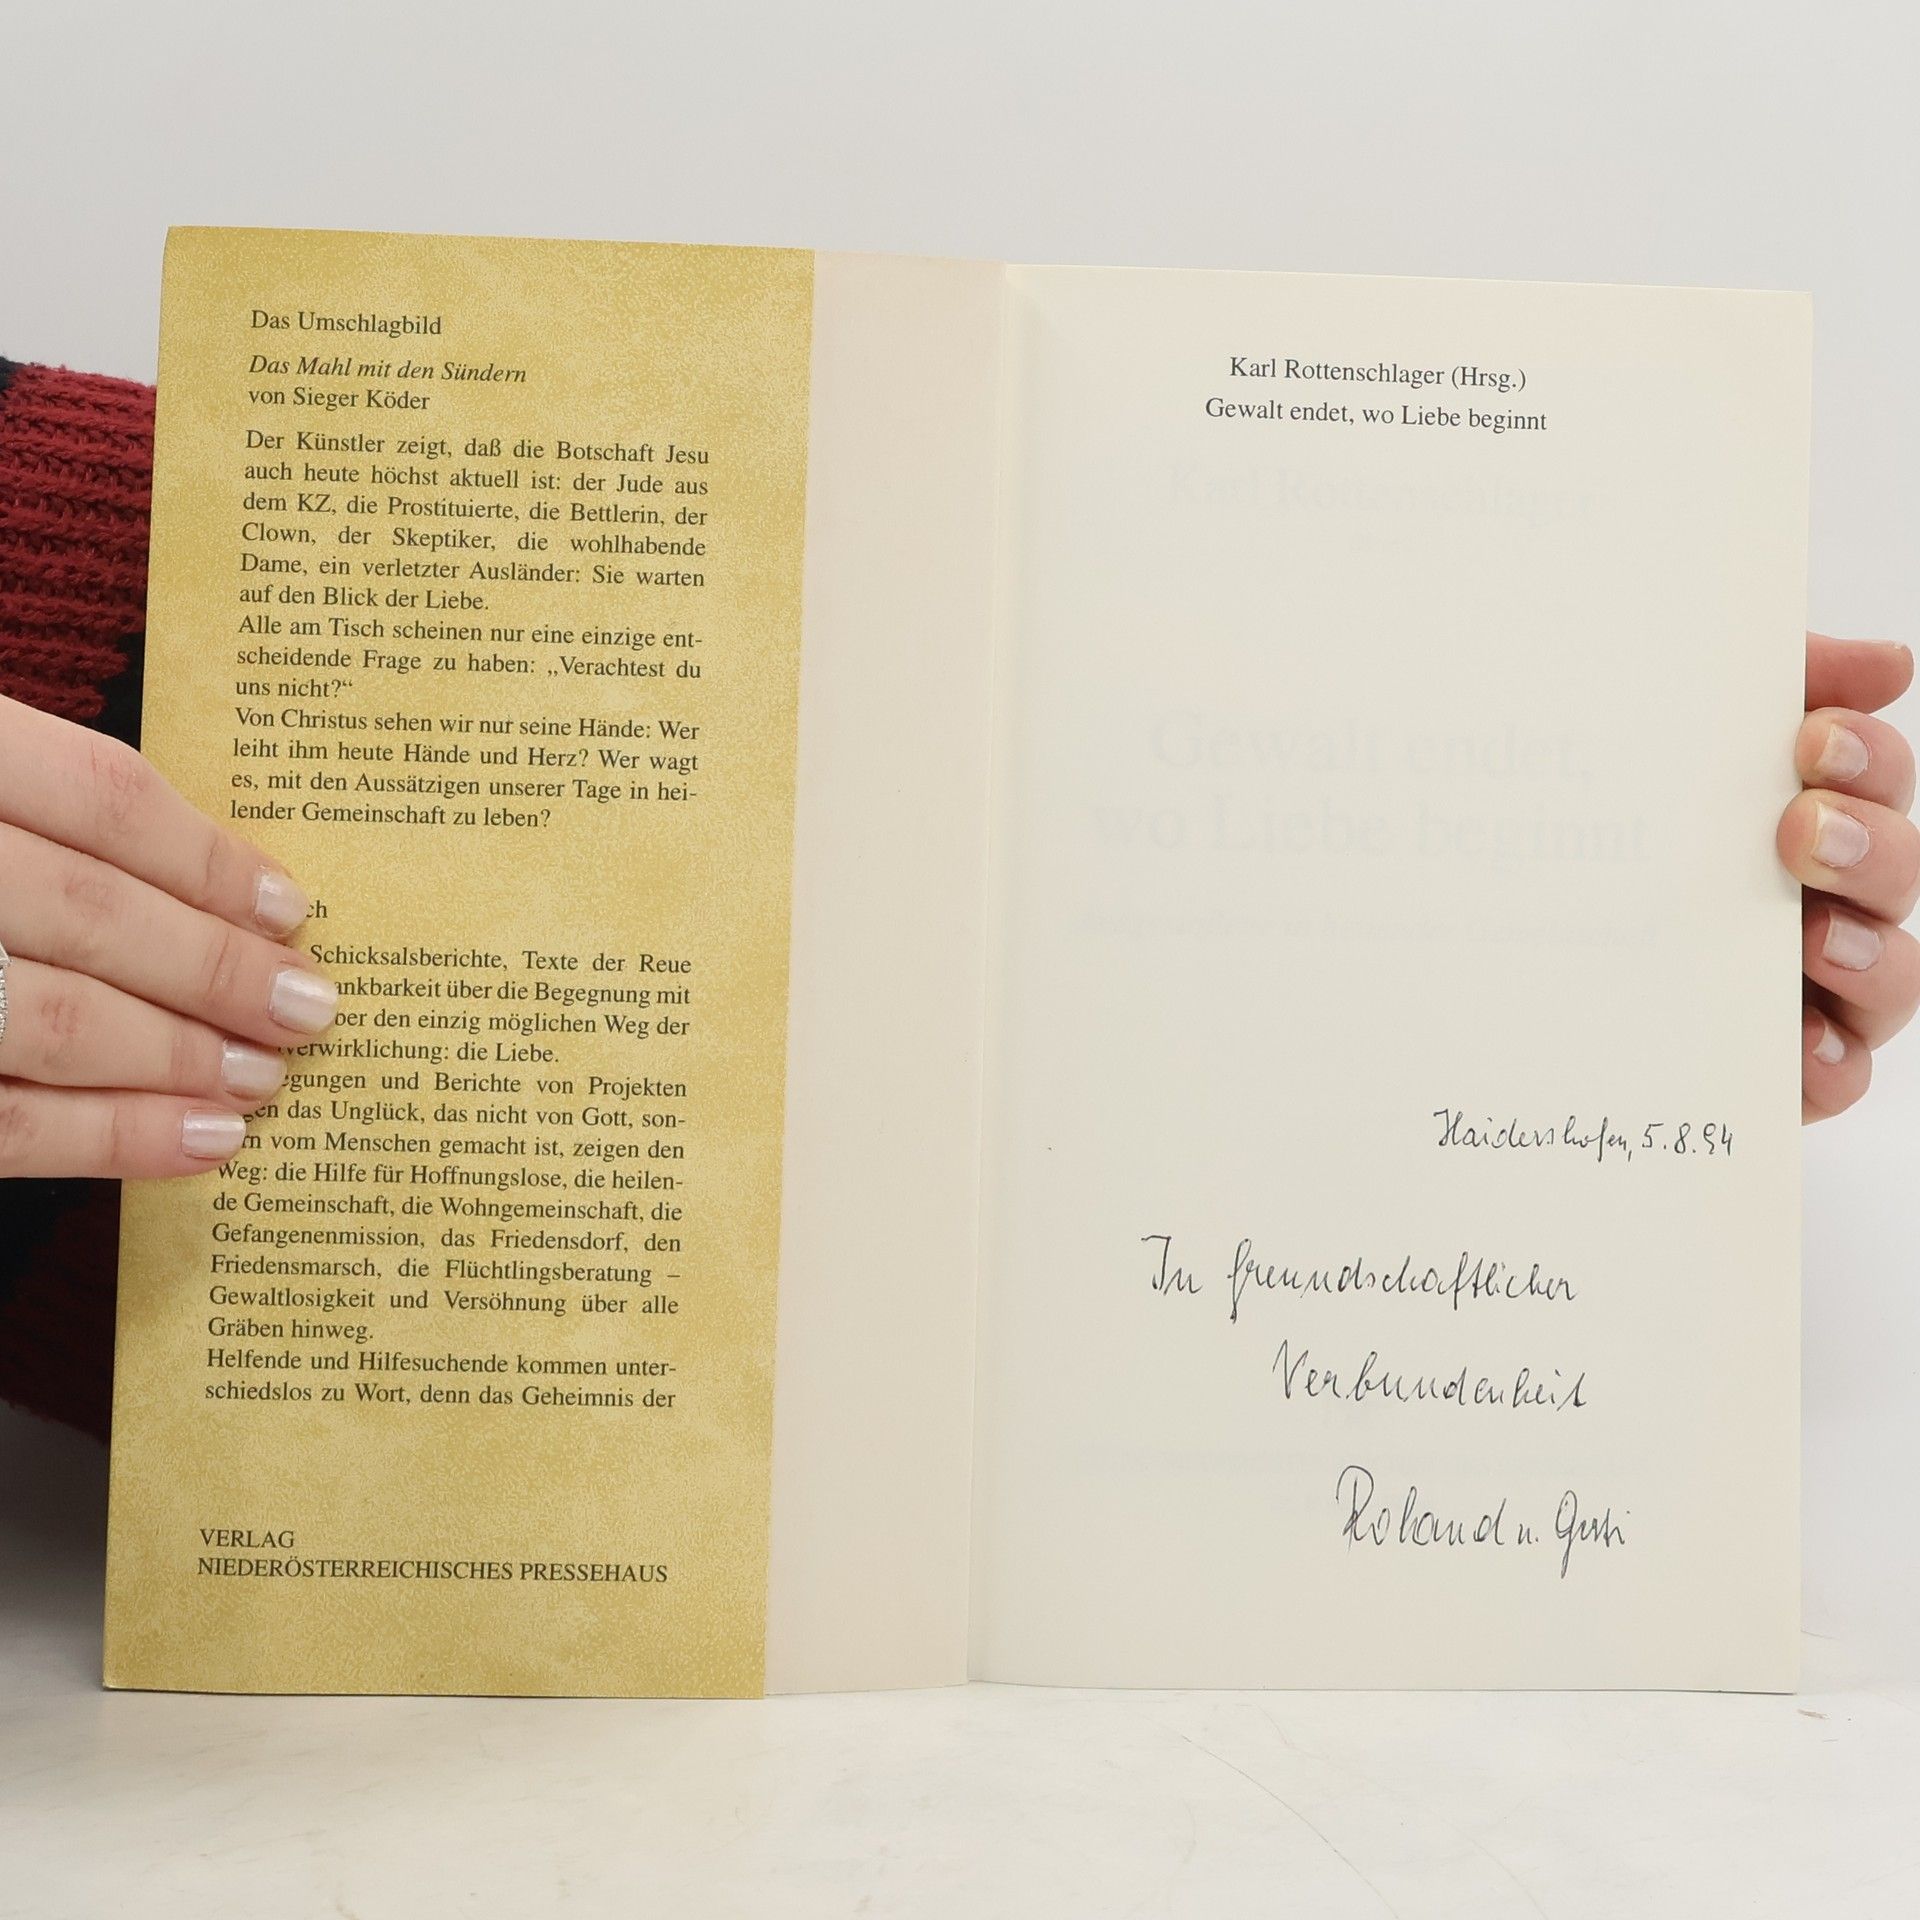 Das Umschlagbild
Das Mahl mit den Sündern
von Sieger Köder
Der Künstler zeigt, daß die Botschaft Jesu
auch heute höchst aktuell ist: der Jude aus
dem KZ, die Prostituierte, die Bettlerin, der
Clown, der Skeptiker, die wohlhabende
Dame, ein verletzter Ausländer: Sie warten
auf den Blick der Liebe.
Alle am Tisch scheinen nur eine einzige ent-
scheidende Frage zu haben: „Verachtest du
uns nicht?“
Von Christus sehen wir nur seine Hände: Wer
leiht ihm heute Hände und Herz? Wer wagt
es, mit den Aussätzigen unserer Tage in hei-
lender Gemeinschaft zu leben?
Schicksalsberichte, Texte der Reue
über die Begegnung mit
den einzig möglichen Weg der
die Liebe.
und Berichte von Projekten
das Unglück, das nicht von Gott, son-
vom Menschen gemacht ist, zeigen den
Weg: die Hilfe für Hoffnungslose, die heilen-
de Gemeinschaft, die Wohngemeinschaft, die
Gefangenenmission, das Friedensdorf, den
Friedensmarsch, die Flüchtlingsberatung –
Gewaltlosigkeit und Versöhnung über alle
Gräben hinweg.
Helfende und Hilfesuchende kommen unter-
schiedslos zu Wort, denn das Geheimnis der
VERLAG
NIEDERÖSTERREICHISCHES PRESSEHAUS
Karl Rottenschlager (Hrsg.)
Gewalt endet, wo Liebe beginnt
Gewalt endet,
wo Liebe beginnt
Haidershofen, 5.8.94
In freundschaftlicher
Verbundenheit
Roland u. Gerti